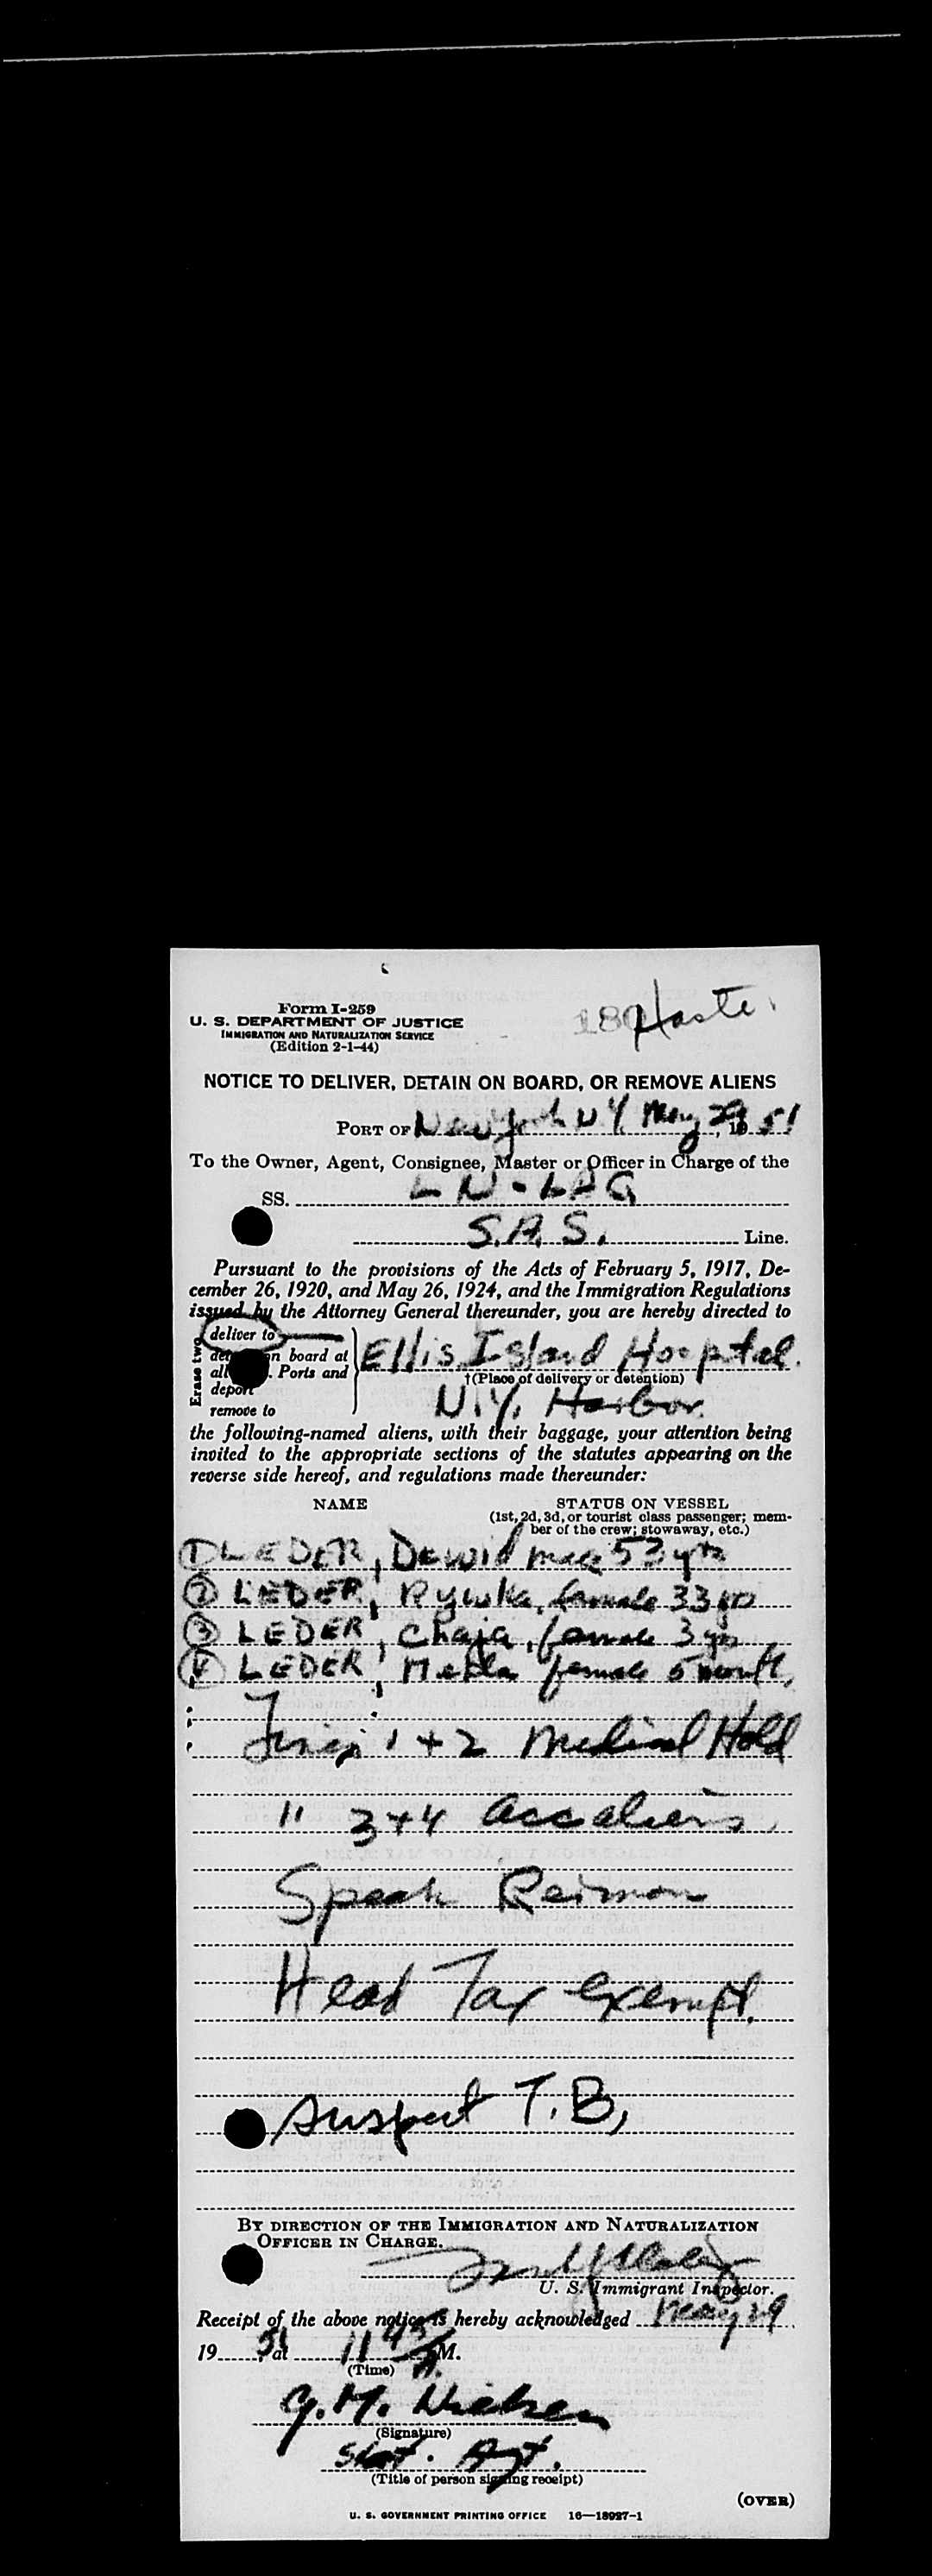 Form I-259
U. S. DEPARTMENT OF JUSTICE
IMMIGRATION AND NATURALIZATION SERVICE
(Edition 2-1-44)
Haste
NOTICE TO DELIVER, DETAIN ON BOARD, OR REMOVE ALIENS
PORT OF New York N Y May 29, 19 51
To the Owner, Agent, Consignee, Master or Officer in Charge of the
SS. LN-LAG
S.A.S. Line.
Pursuant to the provisions of the Acts of February 5, 1917, De-
cember 26, 1920, and May 26, 1924, and the Immigration Regulations
issued by the Attorney General thereunder, you are hereby directed to
Erase two
deliver to
n board at
all . Ports and
deport
remove to
Ellis Island Hospital.
†(Place of delivery or detention)
N.Y. Harbor
the following-named aliens, with their baggage, your attention being
invited to the appropriate sections of the statutes appearing on the
reverse side hereof, and regulations made thereunder:
NAME STATUS ON VESSEL
(1st, 2d, 3d, or tourist class passenger; mem-
ber of the crew; stowaway, etc.)
① LEDER, Dawid male 53 yrs
② LEDER, Rywka, female 33 yrs
③ LEDER, Chaja, female 3 yrs
④ LEDER, female 5 month
1 + 2 Medical Hold
" 3+4 acc aliens
Speak
Head Tax exempt.
Suspect T.B,
BY DIRECTION OF THE IMMIGRATION AND NATURALIZATION
OFFICER IN CHARGE.
U. S. Immigrant Inspector.
Receipt of the above notice is hereby acknowledged May 29
19 51, at 11 45 A M.
(Time)
G.M. Nielsen
(Signature)
Stat. Agt.
(Title of person signing receipt)
(OVER)
U. S. GOVERNMENT PRINTING OFFICE 16—18927-1